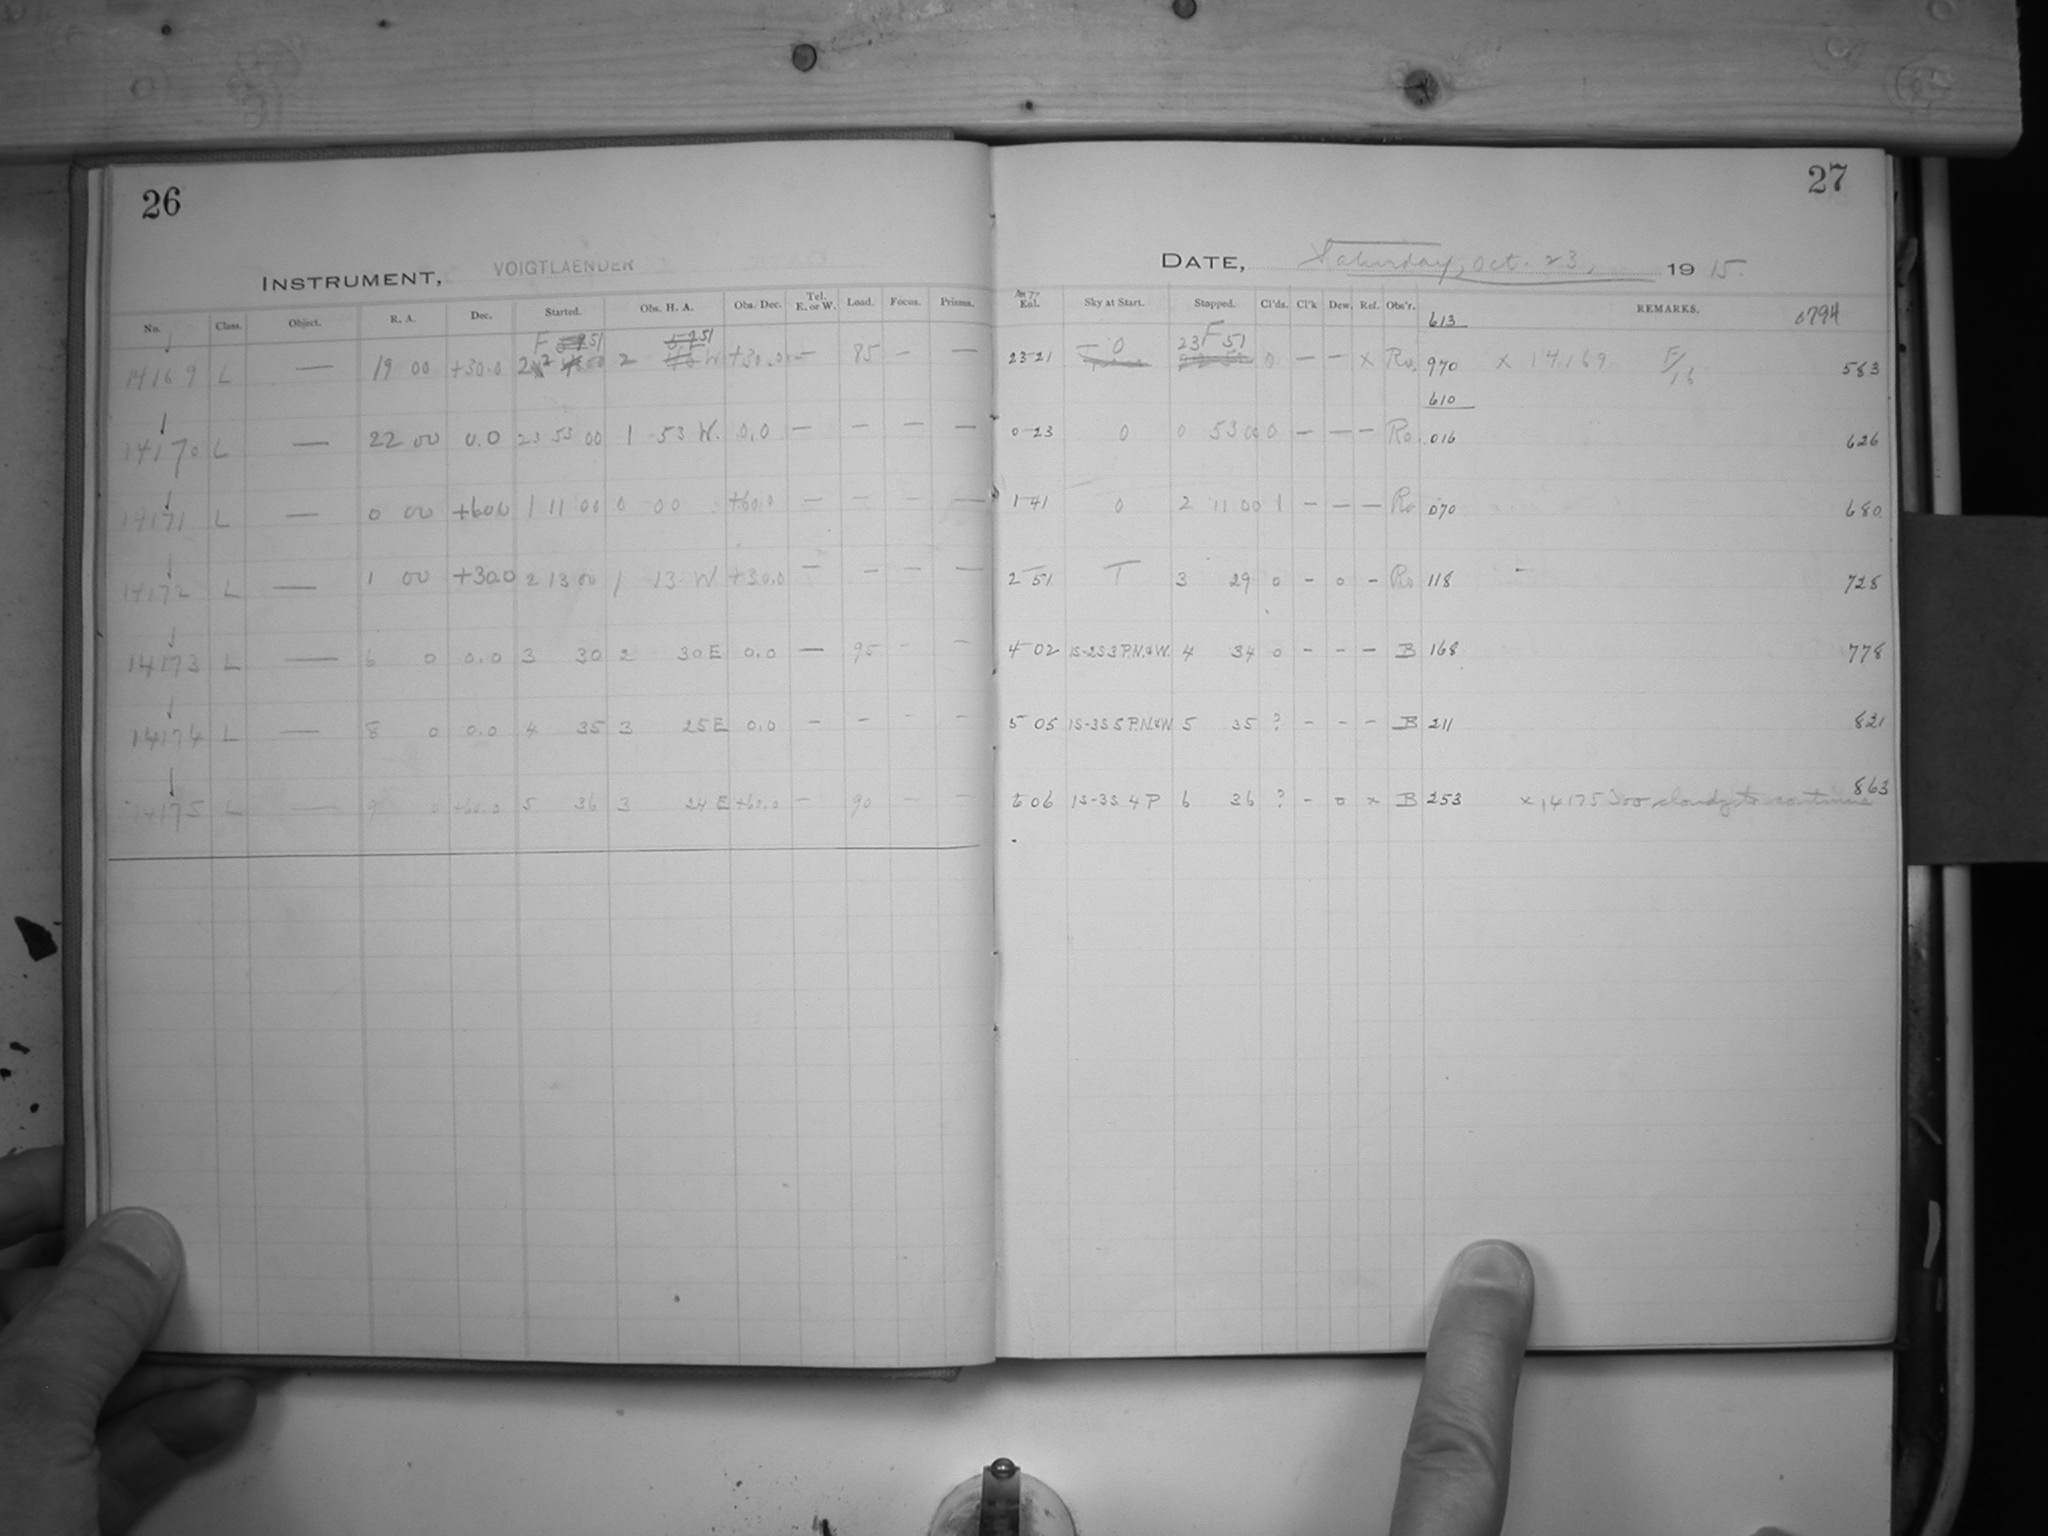 26
27
INSTRUMENT, VOIGTLAENDER
DATE, Saturday, Oct. 23, 1915.
No. Class. Object. R. A. Dec. Started. Obs. H. A. Obs. Dec. Tel. E. or W. Load. Focus. Prisms. Exl. Sky at Start. Stopped. Cl'ds. Cl'k Dew. Ref. Obs'r. REMARKS. 0794
613
14169 L — 19 00 +30.0 2 W +30.0 — 85 — — 23 21 0 23 F 51 0 — — x Ro. 970 x 14169 F/16 583
610
14170 L — 22 00 0.0 23 53 00 1 53 W. 0.0 — — — — 0 23 0 0 53 00 0 — — — Ro 016 626
14171 L — 0 00 +60.0 1 11 00 0 00 +60.0 — — — — 1 41 0 2 11 00 1 — — — Ro 070 680
14172 L — 1 00 +30.0 2 13 00 1 13 W +30.0 — — — — 2 51 T 3 29 0 - 0 - Ro 118 728
14173 L — 6 0 0.0 3 30 2 30 E 0.0 — 95 - — 4 02 1S-2S3P.N.&W. 4 34 0 - - - B 168 778
14174 L — 8 0 0.0 4 35 3 25 E 0.0 - - - - 5 05 1S-3S5P.N.&W 5 35 ? - - - B 211 821
14175 L — 9 0 +60.0 5 36 3 24 E +60.0 - 90 - - 6 06 1S-3S 4 P 6 36 ? - 0 x B 253 x 14175 Too cloudy to continue 863